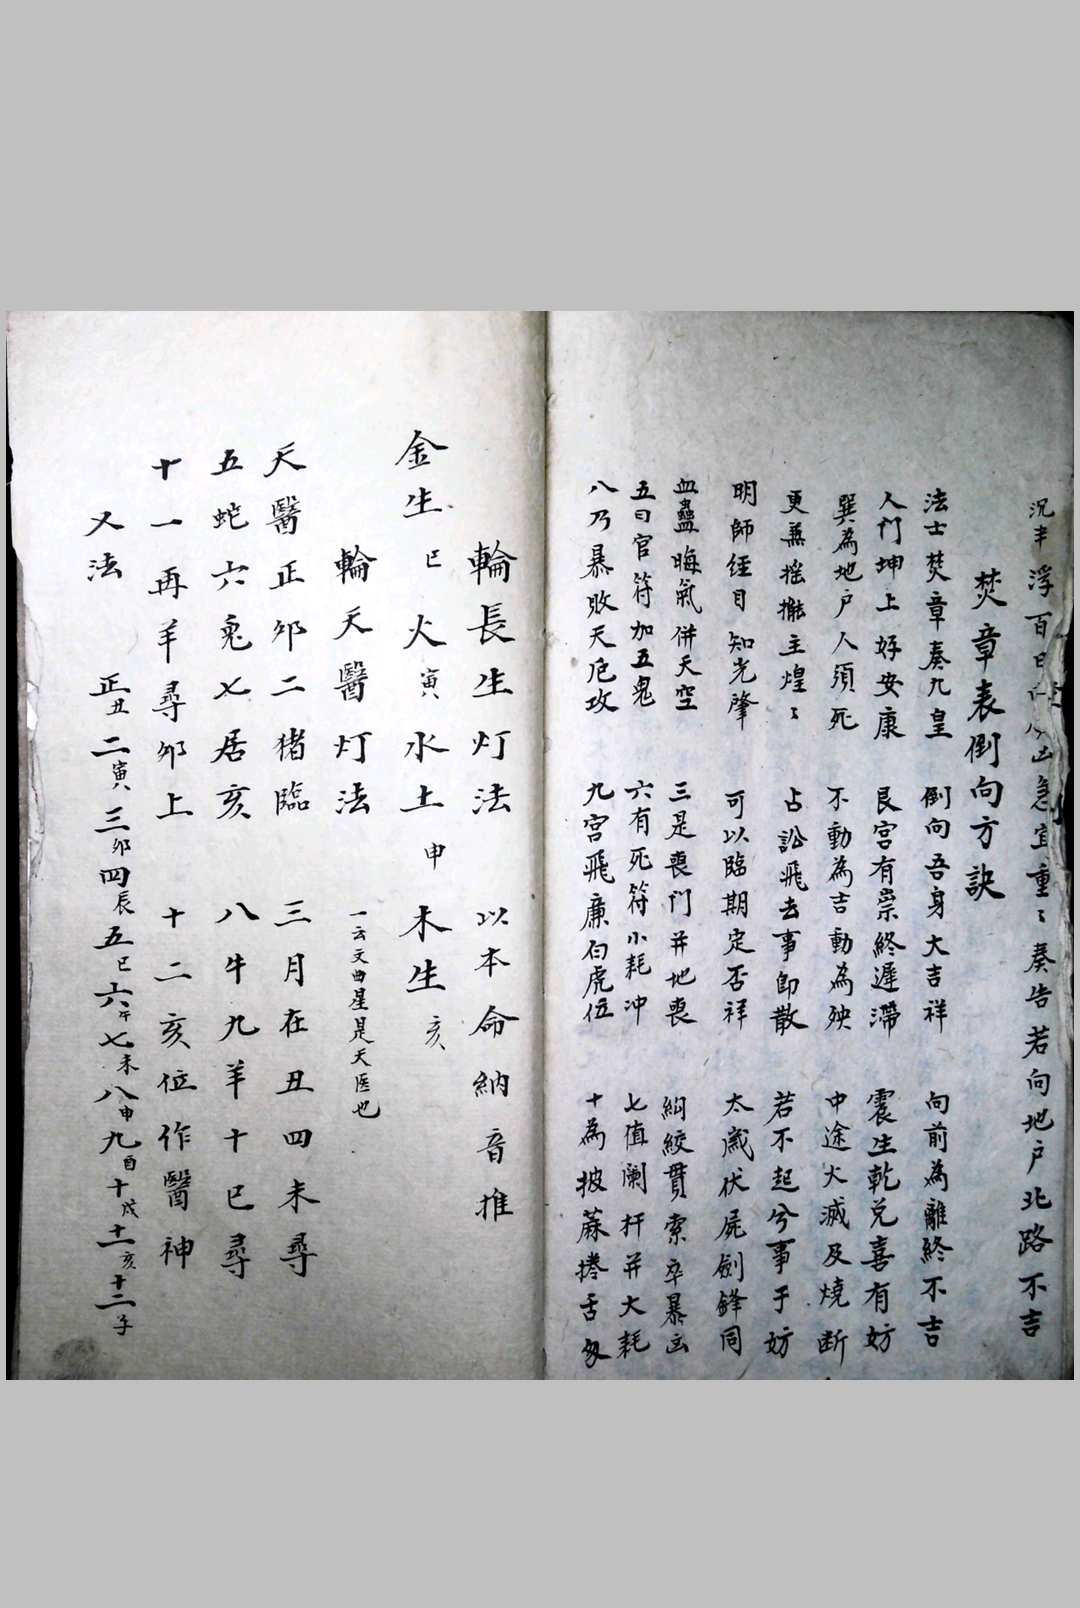 沉丰浮百日 急宜重〻奏告若向地户北路不吉
焚章表倒向方訣
法士焚章奏九皇 倒向吾身大吉祥 向前為離終不吉
人门坤上好安康 艮宫有祟終遲滯 震生乾兑喜有妨
巽為地户人須死 不動為吉動為殃 中途火滅及燒断
更兼摇擺主煌〻 占訟飛去事即散 若不起兮事于妨
明師經目知光肇 可以臨期定否祥 太歲伏屍劍鋒同
血蠱晦氣併天空 三是喪门并地喪 絧絞貫索卒暴凶
五曰官符加五鬼 六有死符小耗冲 七值阑杆并大耗
八乃暴败天厄攻 九宫飛廉白虎位 十為披蔴捲舌匆
輪長生灯法 以本命納音推
金生巳 火寅 水土申 木生亥
輪天醫灯法 一云文曲星是天医也
天醫正夘二猪臨 三月在丑四未尋
五蛇六兎七居亥 八牛九羊十巳尋
十一再羊尋夘上 十二亥位作醫神
又法 正丑二寅三夘四辰五巳六午七未八申九酉十戌十一亥十二子